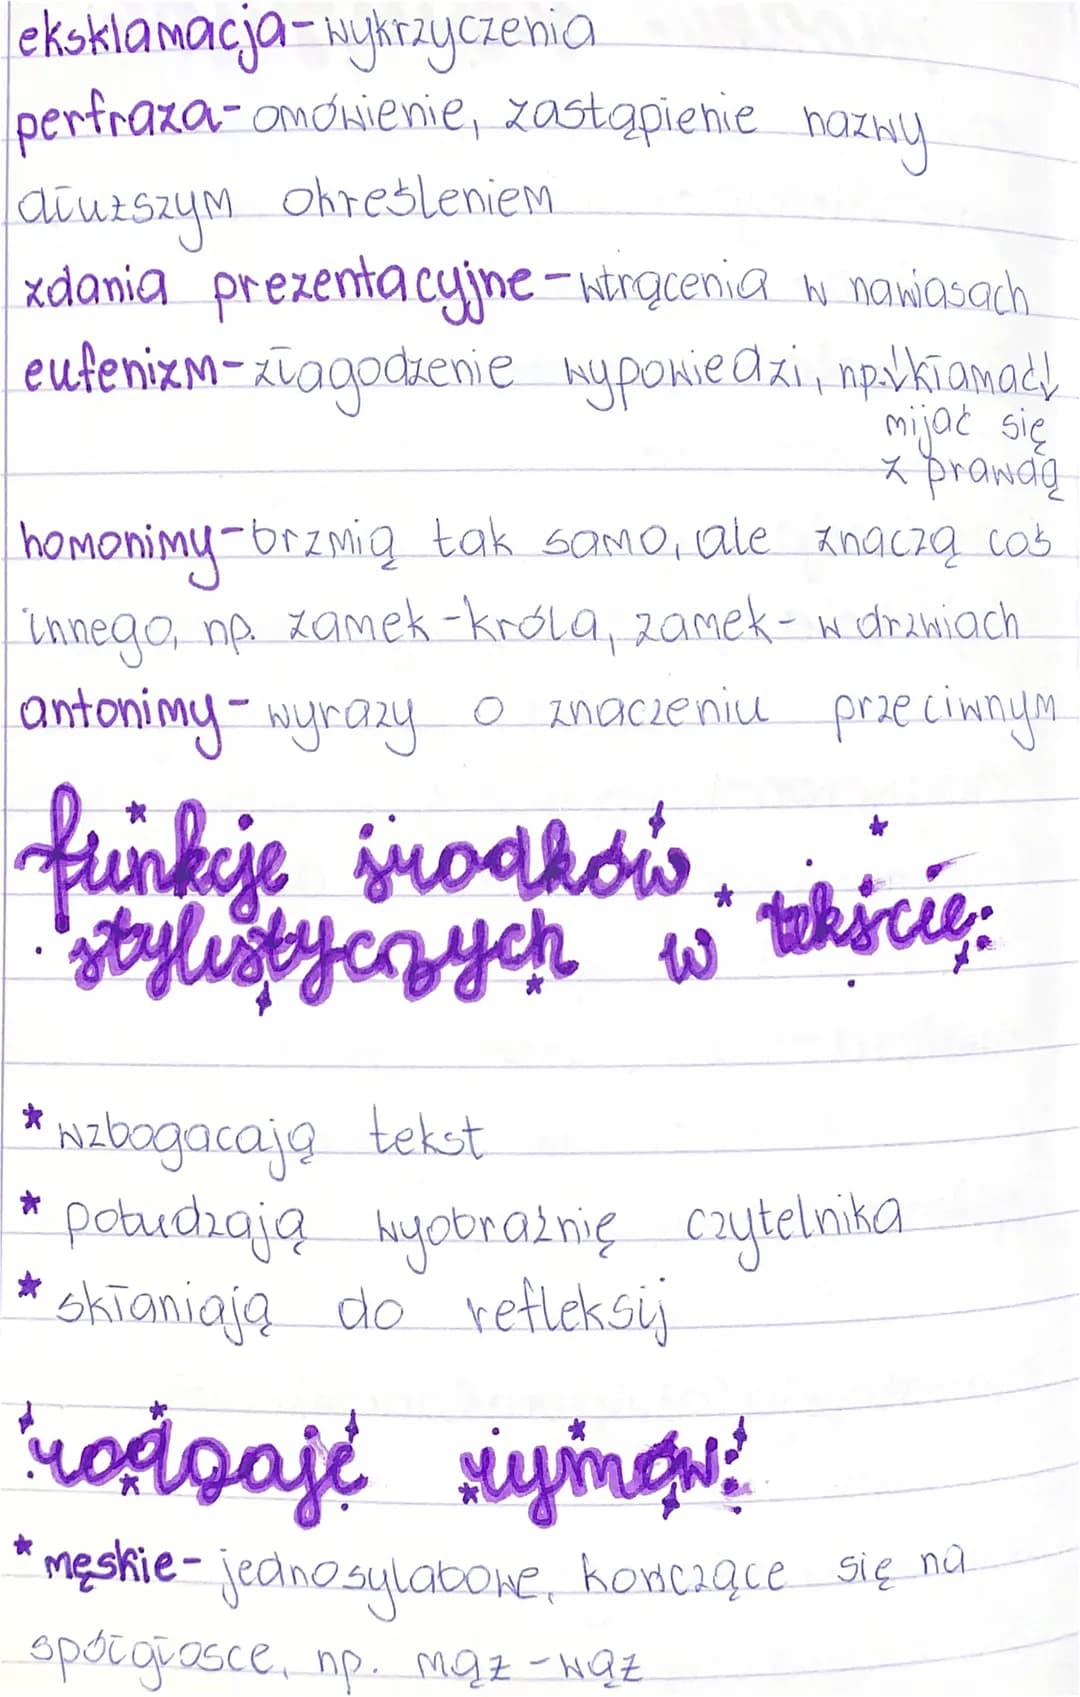 eksklamacja - wykrzyczenia
perfraza - omówienie, zastąpienie nazwy
dłuższym określeniem
zdania prezentacyjne - wtrącenia w nawiasach
eufenizm - złagodzenie wypowiedzi, np. kłamać
mijać się
z prawdą
homonimy - brzmią tak samo, ale znaczą coś
innego, np. zamek - króla, zamek - w drzwiach
antonimy - wyrazy o znaczeniu przeciwnym
funkcje środków
stylistycznych w tekście:
* wzbogacają tekst
* pobudzają wyobraźnię czytelnika
* skłaniają do refleksij
rodzaje rymów:
* męskie - jednosylabowe, kończące się na
spółgłosce, np. mąż - wąż